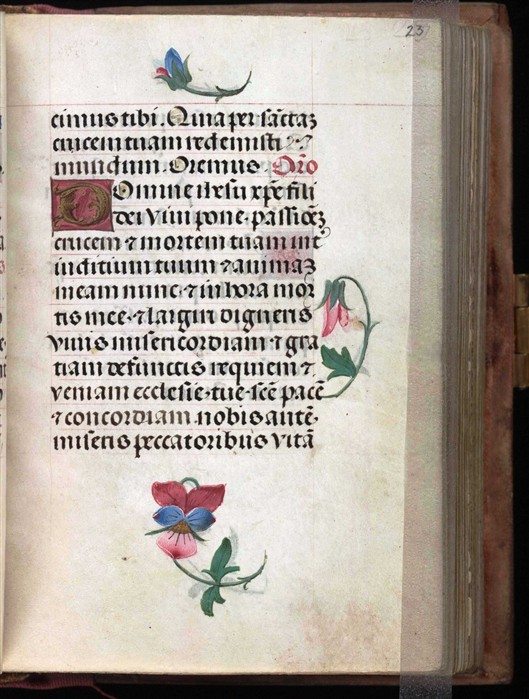 23
cimus tibi. Quia per sc̄taꝫ
crucem tuam redemisti
mundum. Oremus. Or̄o
Domine iħesu xp̄e fili
dei viui pone. passioēꝫ
crucem ⁊ mortem tuam int̄
iuditium tuum ⁊ animaꝫ
meam nunc. ⁊ in hora mor
tis mee. ⁊ largiri digneris
viuis misericordiam ⁊ gra
tiam defunctis requiem ⁊
veniam ecclesie. tue. sc̄e pacē
⁊ concordiam. nobis autē.
miseris peccatoribus vitā